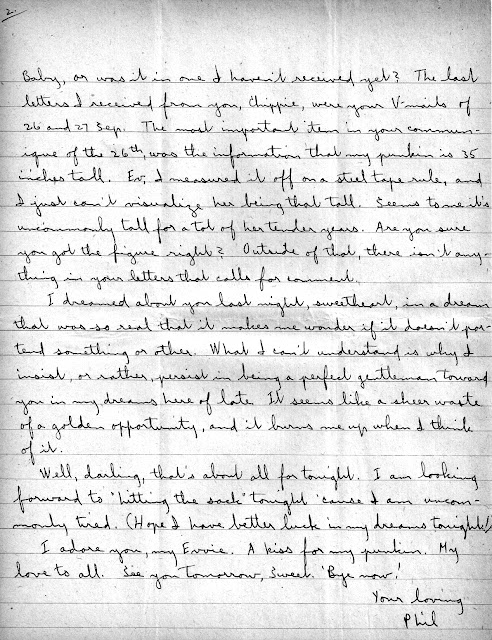 2.
Baby, or was it in one I haven't received yet? The last
letters I received from you, Chippie, were your V-mails of
26 and 27 Sep. The most important item in your commun-
ique of the 26th, was the information that my punkin is 35
inches tall. Ev, I measured it off on a steel tape rule, and
I just can't visualize her being that tall. Seems to me it's
uncommonly tall for a tot of her tender years. Are you sure
you got the figure right? Outside of that, there isn't any-
thing in your letters that calls for comment.
I dreamed about you last night, sweetheart, in a dream
that was so real that it makes me wonder if it doesn't por-
tend something or other. What I can't understand is why I
insist, or rather, persist in being a perfect gentleman toward
you in my dreams here of late. It seems like a sheer waste
of a golden opportunity, and it burns me up when I think
of it.
Well, darling, that's about all for tonight. I am looking
forward to "hitting the sack" tonight 'cause I am uncom-
monly tired. (Hope I have better luck in my dreams tonight!)
I adore you, my Evvie. A kiss for my punkin. My
love to all. See you tomorrow, Sweet. 'Bye now!
Your loving
Phil